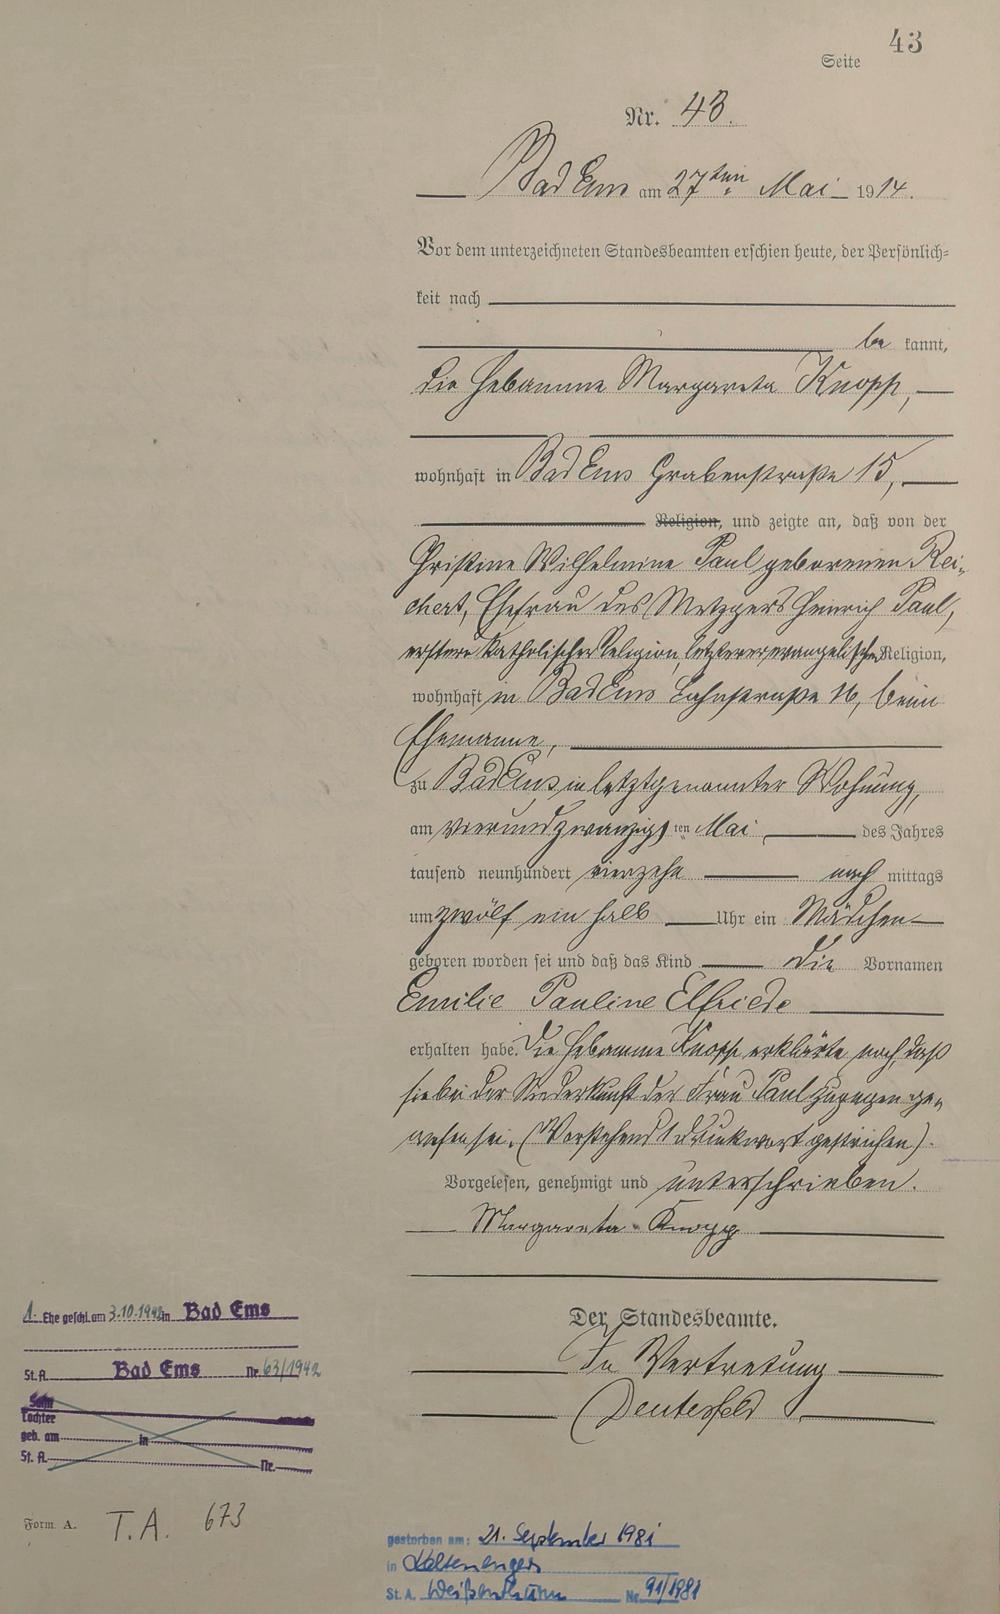 Seite 43
Nr. 43.
Bad Ems am 27ten Mai 1914.
Vor dem unterzeichneten Standesbeamten erschien heute, der Persönlich-
keit nach
be kannt,
die Hebamme Margareta Knopp,
wohnhaft in Bad Ems Grabenstraße 15,
Religion, und zeigte an, daß von der
Christine Wilhelmine Paul geborenen Rei-
chert, Ehefrau des Metzgers Heinrich Paul,
erstere katholischer Religion, letzterer evangelischer Religion,
wohnhaft in Bad Ems Lahnstraße 16, beim
Ehemanne,
zu Bad Ems in letztgenannter Wohnung,
am vierundzwanzigsten Mai des Jahres
tausend neunhundert vierzehn nach mittags
um zwölf ein halb Uhr ein Mädchen
geboren worden sei und daß das Kind die Vornamen
Emilie Pauline Elfriede
erhalten habe. Die Hebamme Knopp erklärte noch, daß
sie bei der Niederkunft der Frau Paul zugegen ge-
wesen sei. (Vorstehend 1 Druckwort gestrichen).
Vorgelesen, genehmigt und unterschrieben.
Margareta Knopp
Der Standesbeamte.
In Vertretung
1. Ehe geschl. am 3.10.1942 in Bad Ems
St.A. Bad Ems Nr. 63/1942
Sohn
Tochter
geb. am in
St. A. Nr.
Form A. T.A. 673
gestorben am: 21. September 1981
in Kaltenengers
St. A. Weißenthurm Nr. 91/1981